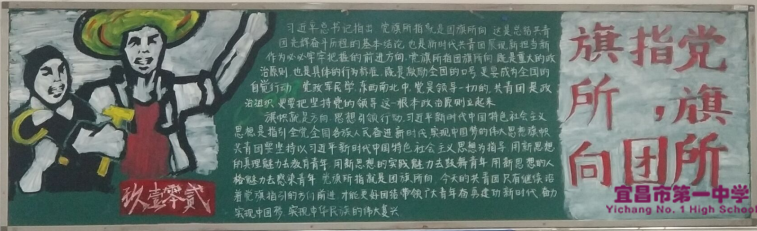 习近平总书记指出 党旗所指就是团旗所向 这是总结共青
团走辉奋斗历程的基本结论 也是新时代共青团展现新担当新
作为必须牢牢把握的前进方向 党旗所指团旗所向 既是重大的政
治原则 也是具体的行为标准 既是激励全团的口号 更要成为全团的
自觉行动 党政军民学 东西南北中 党是领导一切的 共青团是政
治组织 更要把坚持党的领导这一根本政治原则立起来
旗帜就是方向 思想引领行动 习近平新时代中国特色社会主义
思想是指引全党全国各族人民奋进新时代 实现中国梦的伟大思想旗帜
共青团要坚持以习近平新时代中国特色社会主义思想为指导 用新思想
的真理魅力去教育青年 用新思想的实践魅力去鼓舞青年 用新思想的人
格魅力去感染青年 党旗所指就是团旗所向 今天的共青团只有继续沿
着党旗指引的方向前进 才能更好团结带领广大青年奋勇建功新时代 奋力
实现中国梦 实现中华民族的伟大复兴
党旗所
指，团
旗所向
玖壹零贰
宜昌市第一中学
Yichang No. 1 High School